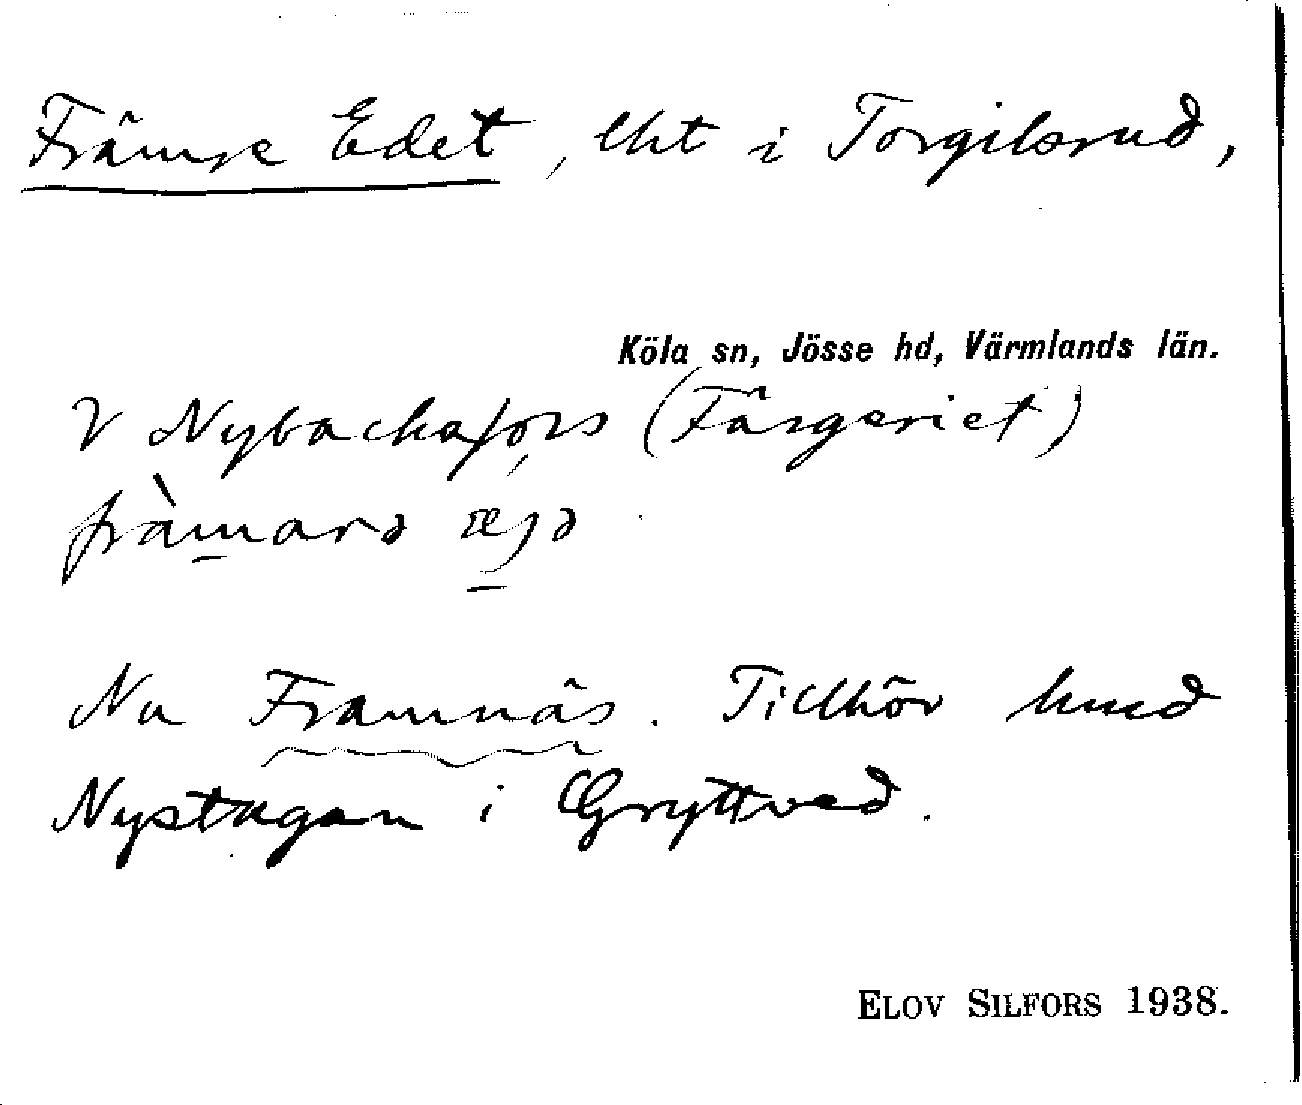 Främre Edet, lht i Torgilsrud,
Köla sn, Jösse hd, Värmlands län.
V Nybackafors (Färgeriet)
fràmarə
Nu Framnäs. Tillhör hmd
Nystugan i Gryttved.
ELOV SILFORS 1938.